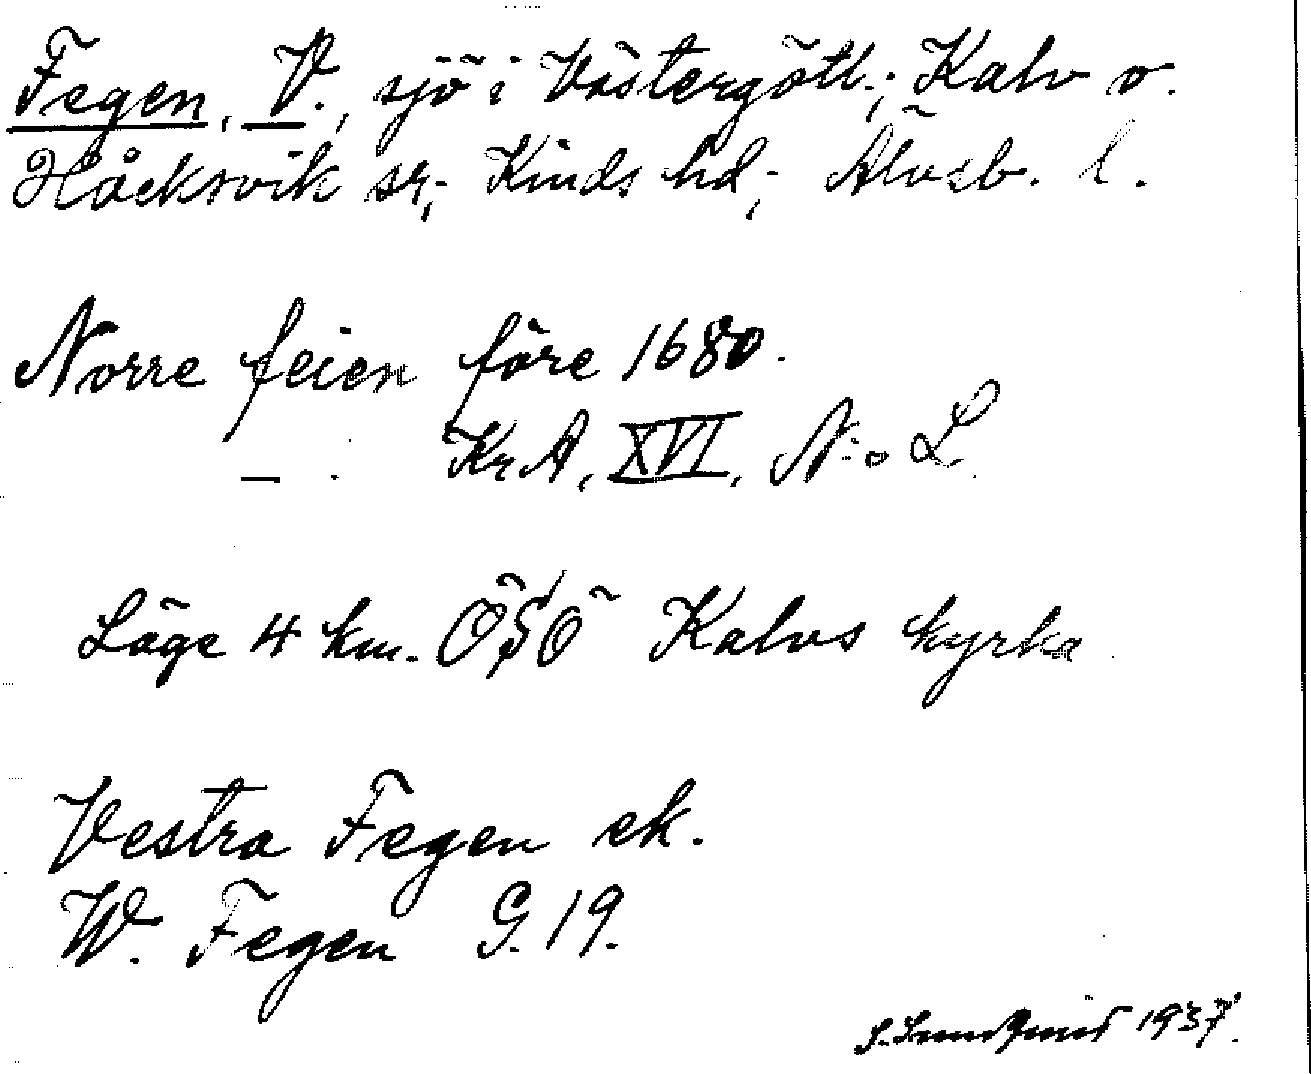 Fegen, V., sjö i Västergötl.; Kalv o.
Håcksvik sr; Kinds hd; Älvsb. l.
Norre feien före 1680.
— . KrA, XVI, N:o L.
Läge 4 km. ÖSÖ Kalvs kyrka
Vestra Fegen ek.
W. Fegen G. 19.
S. Lundqvist 1937.